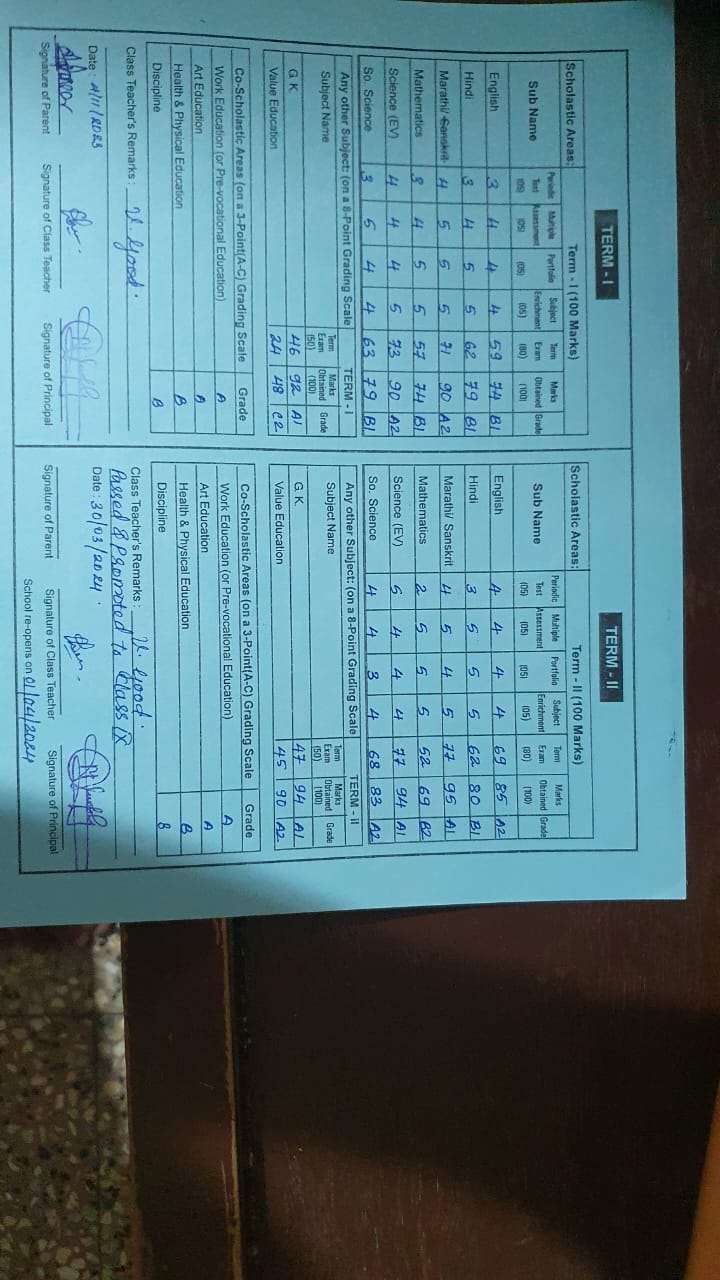 TERM - I
Scholastic Areas: Term - I (100 Marks)
Sub Name Periodic Test (05) Multiple Assessment (05) Portfolio (05) Subject Enrichment (05) Term Exam (80) Marks Obtained (100) Grade
English 3 4 4 4 59 74 B1
Hindi 3 4 5 5 62 79 B1
Marathi/ Sanskrit 4 5 5 5 71 90 A2
Mathematics 3 4 5 5 57 74 B1
Science (EV) 4 4 4 5 73 90 A2
So. Science 3 5 4 4 63 79 B1
Any other Subject: (on a 8-Point Grading Scale TERM - I
Subject Name Term Exam (50) Marks Obtained (100) Grade
G.K. 46 92 A1
Value Education 24 48 C2
Co-Scholastic Areas (on a 3-Point(A-C) Grading Scale Grade
Work Education (or Pre-vocational Education) A
Art Education B
Health & Physical Education B
Discipline B
Class Teacher's Remarks : V. Good.
Date : 4/11/2023
Signature of Parent Signature of Class Teacher Signature of Principal
TERM - II
Scholastic Areas: Term - II (100 Marks)
Sub Name Periodic Test (05) Multiple Assessment (05) Portfolio (05) Subject Enrichment (05) Term Exam (80) Marks Obtained (100) Grade
English 4 4 4 4 69 85 A2
Hindi 3 5 5 5 62 80 B1
Marathi/ Sanskrit 4 5 4 5 77 95 A1
Mathematics 2 5 5 5 52 69 B2
Science (EV) 5 4 4 4 77 94 A1
So. Science 4 4 3 4 68 83 A2
Any other Subject: (on a 8-Point Grading Scale TERM - II
Subject Name Term Exam (50) Marks Obtained (100) Grade
G.K. 47 94 A1
Value Education 45 90 A2
Co-Scholastic Areas (on a 3-Point(A-C) Grading Scale Grade
Work Education (or Pre-vocational Education) A
Art Education A
Health & Physical Education B
Discipline B
Class Teacher's Remarks : V. Good.
Passed & Promoted to Class IX
Date : 30/03/2024.
Signature of Parent Signature of Class Teacher Signature of Principal
School re-opens on 01/04/2024